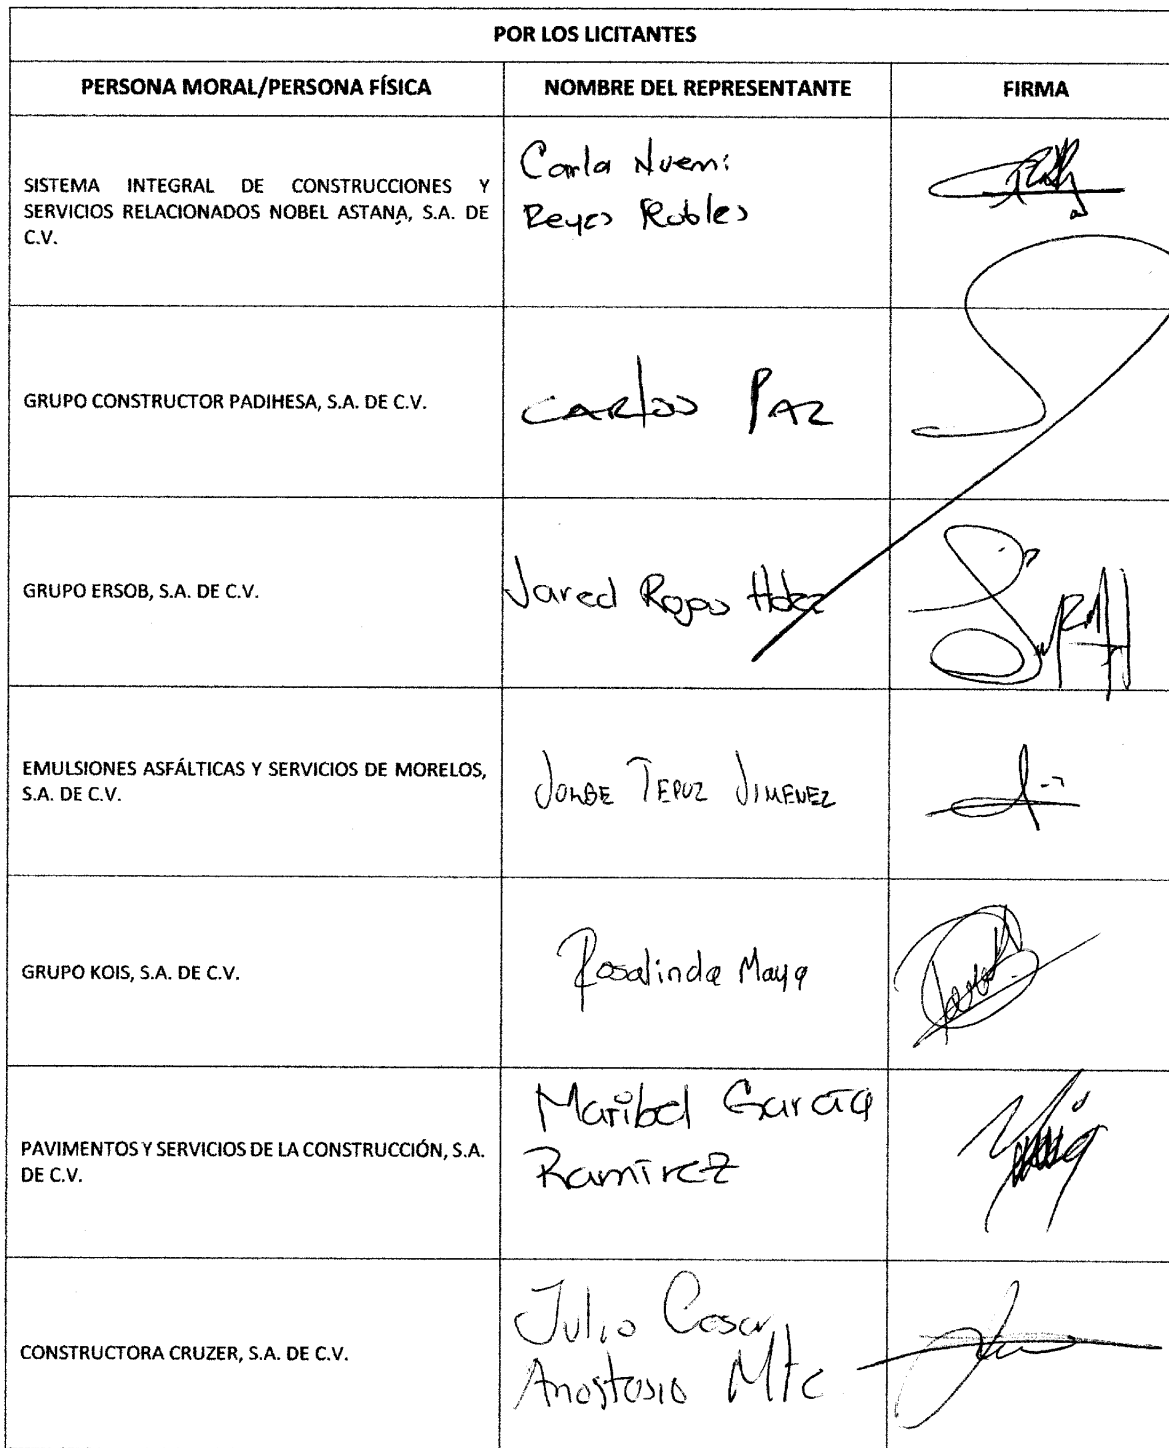 POR LOS LICITANTES
PERSONA MORAL/PERSONA FÍSICA NOMBRE DEL REPRESENTANTE FIRMA
SISTEMA INTEGRAL DE CONSTRUCCIONES Y
SERVICIOS RELACIONADOS NOBEL ASTANA, S.A. DE
C.V.
Carla Nuemi
Reyes Robles
GRUPO CONSTRUCTOR PADIHESA, S.A. DE C.V.
CARLOS PAZ
GRUPO ERSOB, S.A. DE C.V.
Jared Rojas Hdez
EMULSIONES ASFÁLTICAS Y SERVICIOS DE MORELOS,
S.A. DE C.V.
JORGE TEPOZ JIMENEZ
GRUPO KOIS, S.A. DE C.V.
Rosalinda Maya
PAVIMENTOS Y SERVICIOS DE LA CONSTRUCCIÓN, S.A.
DE C.V.
Maribel García
Ramírez
CONSTRUCTORA CRUZER, S.A. DE C.V.
Julio Cesar
Anastasio